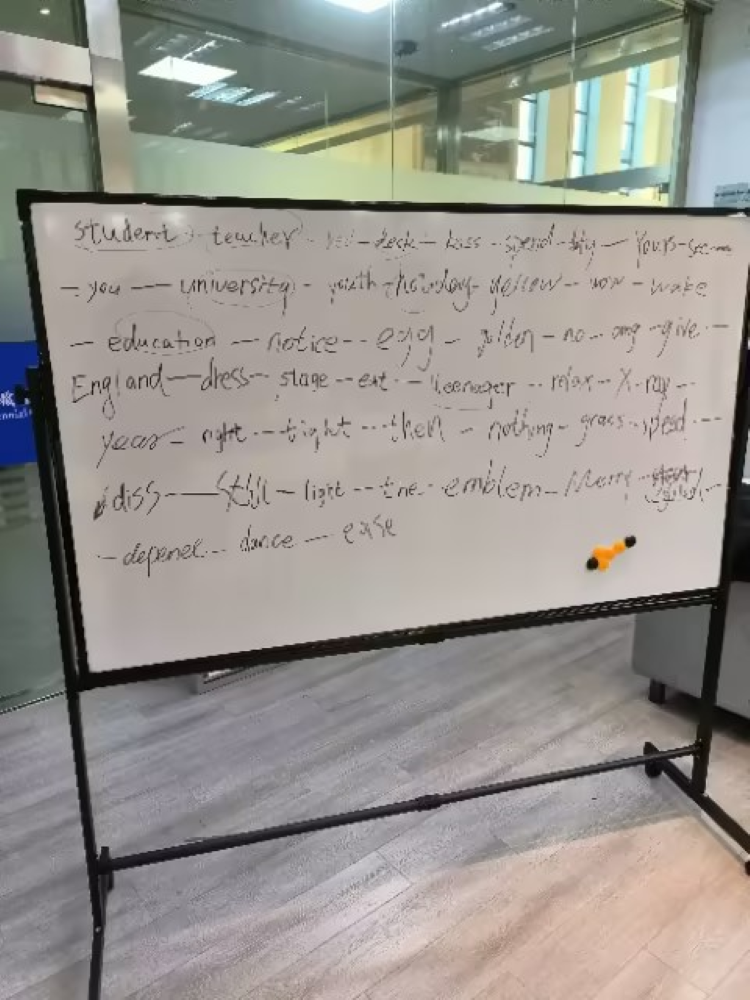 student - teacher - desk - boss - spend - - yours - see -
- you - university - youth - - yellow - wow - wake
- education - notice - egg - golden - no - omg - give -
England - dress - stage - eat - teenager - relax - X-ray -
year - right - tight - then - nothing - grass - speed -
diss - still - light - - emblem - Merry -
- depend - dance - ease